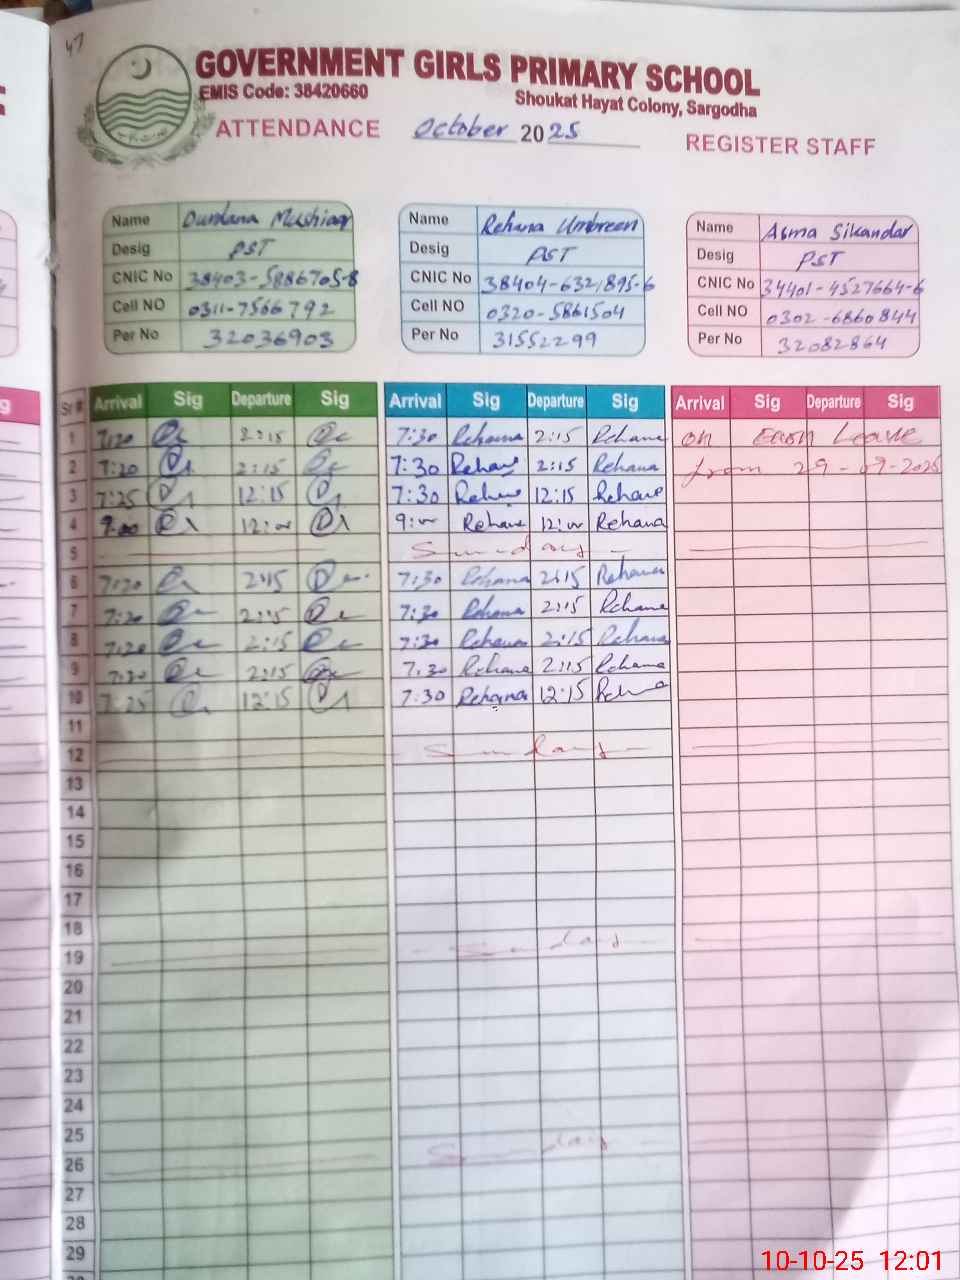 47
GOVERNMENT GIRLS PRIMARY SCHOOL
EMIS Code: 38420660 Shoukat Hayat Colony, Sargodha
ATTENDANCE October 2025 REGISTER STAFF
Name Durdana Mushtaq
Desig PST
CNIC No 38403-5886705-8
Cell NO 0311-7566792
Per No 32036903
Name Rehana Umbreen
Desig PST
CNIC No 38404-6321895-6
Cell NO 0320-5861504
Per No 31552299
Name Asma Sikandar
Desig PST
CNIC No 34401-4527664-6
Cell NO 0302-6860844
Per No 32082864
Sr # Arrival Sig Departure Sig Arrival Sig Departure Sig Arrival Sig Departure Sig
1 7:20 2:15 7:30 Rehana 2:15 Rehana on Earn Leave
2 7:20 2:15 7:30 Rehana 2:15 Rehana from 29-09-2025
3 7:25 12:15 7:30 Rehana 12:15 Rehana
4 9:00 12:00 9:00 Rehana 12:00 Rehana
5 Sunday
6 7:20 2:15 7:30 Rehana 2:15 Rehana
7 7:20 2:15 7:30 Rehana 2:15 Rehana
8 7:20 2:15 7:30 Rehana 2:15 Rehana
9 7:20 2:15 7:30 Rehana 2:15 Rehana
10 7:25 12:15 7:30 Rehana 12:15 Rehana
11
12 Sunday
13
14
15
16
17
18
19 Sunday
20
21
22
23
24
25
26 Sunday
27
28
29
10-10-25 12:01